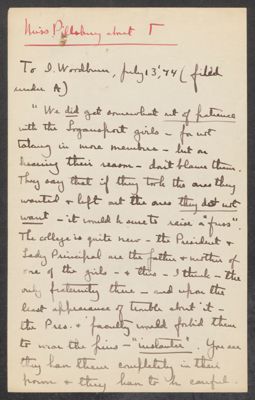 Miss Pillsbury about T
To I. Woodburn, July 13 '74 (filed
under A)
"We did get somewhat out of patience
with the Logansport girls - for not
taking in more members - but on
hearing their reason - don't blame them.
They say that if they took the ones they
wanted & left out the ones they did not
want - it would be sure to raise a "fuss".
The college is quite new - the President &
Lady Principal are the father & mother of
one of the girls - & this - I think - the
only fraternity there - and upon the
least appearance of trouble about it -
the Pres. & faculty would forbid them
to wear the pins - "instanter". You see
they have them completely in their
power & they have to be careful.